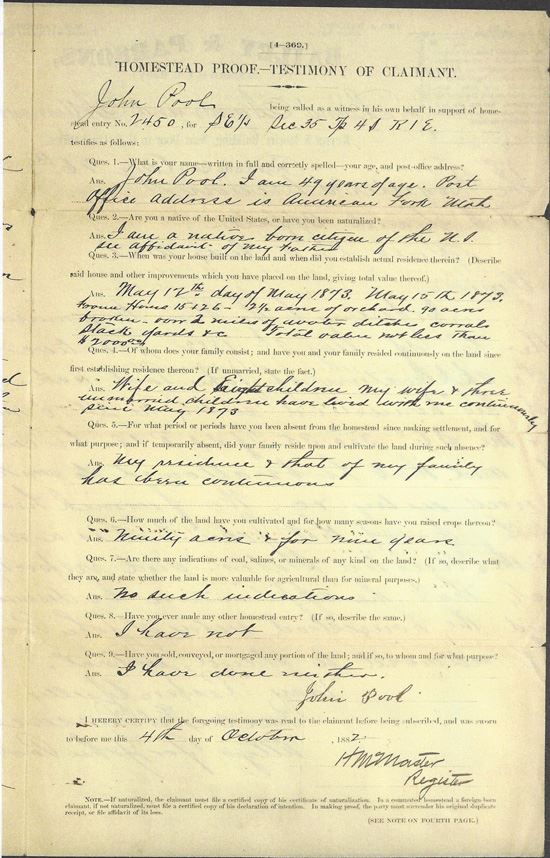 [4—369.]
HOMESTEAD PROOF.—TESTIMONY OF CLAIMANT.
John Pool being called as a witness in his own behalf in support of home-
stead entry No. 2450, for S E ¼ Sec 35 Tp 4 S R 1 E.
testifies as follows:
Ques. 1.—What is your name—written in full and correctly spelled—your age, and post-office address?
Ans. John Pool. I am 49 years of age. Post
Office address is American Fork Utah
Ques. 2.—Are you a native of the United States, or have you been naturalized?
Ans. I am a native born citizen of the U.S.
see affidavit of my Father
Ques. 3.—When was your house built on the land and when did you establish actual residence therein? (Describe
said house and other improvements which you have placed on the land, giving total value thereof.)
Ans. May 12th day of May 1873. May 15th 1873.
House 15 x 26 – 2½ acres of orchard 90 acres
broken – over 2 miles of water ditches corrals
stack yards & c Total value not less than
$2000.00
Ques. 4.—Of whom does your family consist; and have you and your family resided continuously on the land since
first establishing residence thereon? (If unmarried, state the fact.)
Ans. Wife and Eight children my wife & three
unmarried children have lived with me continuously
since May 1873
Ques. 5.—For what period or periods have you been absent from the homestead since making settlement, and for
what purpose; and if temporarily absent, did your family reside upon and cultivate the land during such absence?
Ans. My residence & that of my family
has been continuous
Ques. 6.—How much of the land have you cultivated and for how many seasons have you raised crops thereon?
Ans. Ninety acres & for nine years
Ques. 7.—Are there any indications of coal, salines, or minerals of any kind on the land? (If so, describe what
they are, and state whether the land is more valuable for agricultural than for mineral purposes.)
Ans. No such indications
Ques. 8.—Have you ever made any other homestead entry? (If so, describe the same.)
Ans. I have not
Ques. 9.—Have you sold, conveyed, or mortgaged any portion of the land; and if so, to whom and for what purpose?
Ans. I have done neither.
John Pool
I HEREBY CERTIFY that the foregoing testimony was read to the claimant before being subscribed, and was sworn
to before me this 4th day of October, 1882.
H McMaster
Register
NOTE.—If naturalized, the claimant must file a certified copy of his certificate of naturalization. In a commuted homestead a foreign-born
claimant, if not naturalized, must file a certified copy of his declaration of intention. In making proof, the party must surrender his original duplicate
receipt, or file affidavit of its loss.
(SEE NOTE ON FOURTH PAGE.)